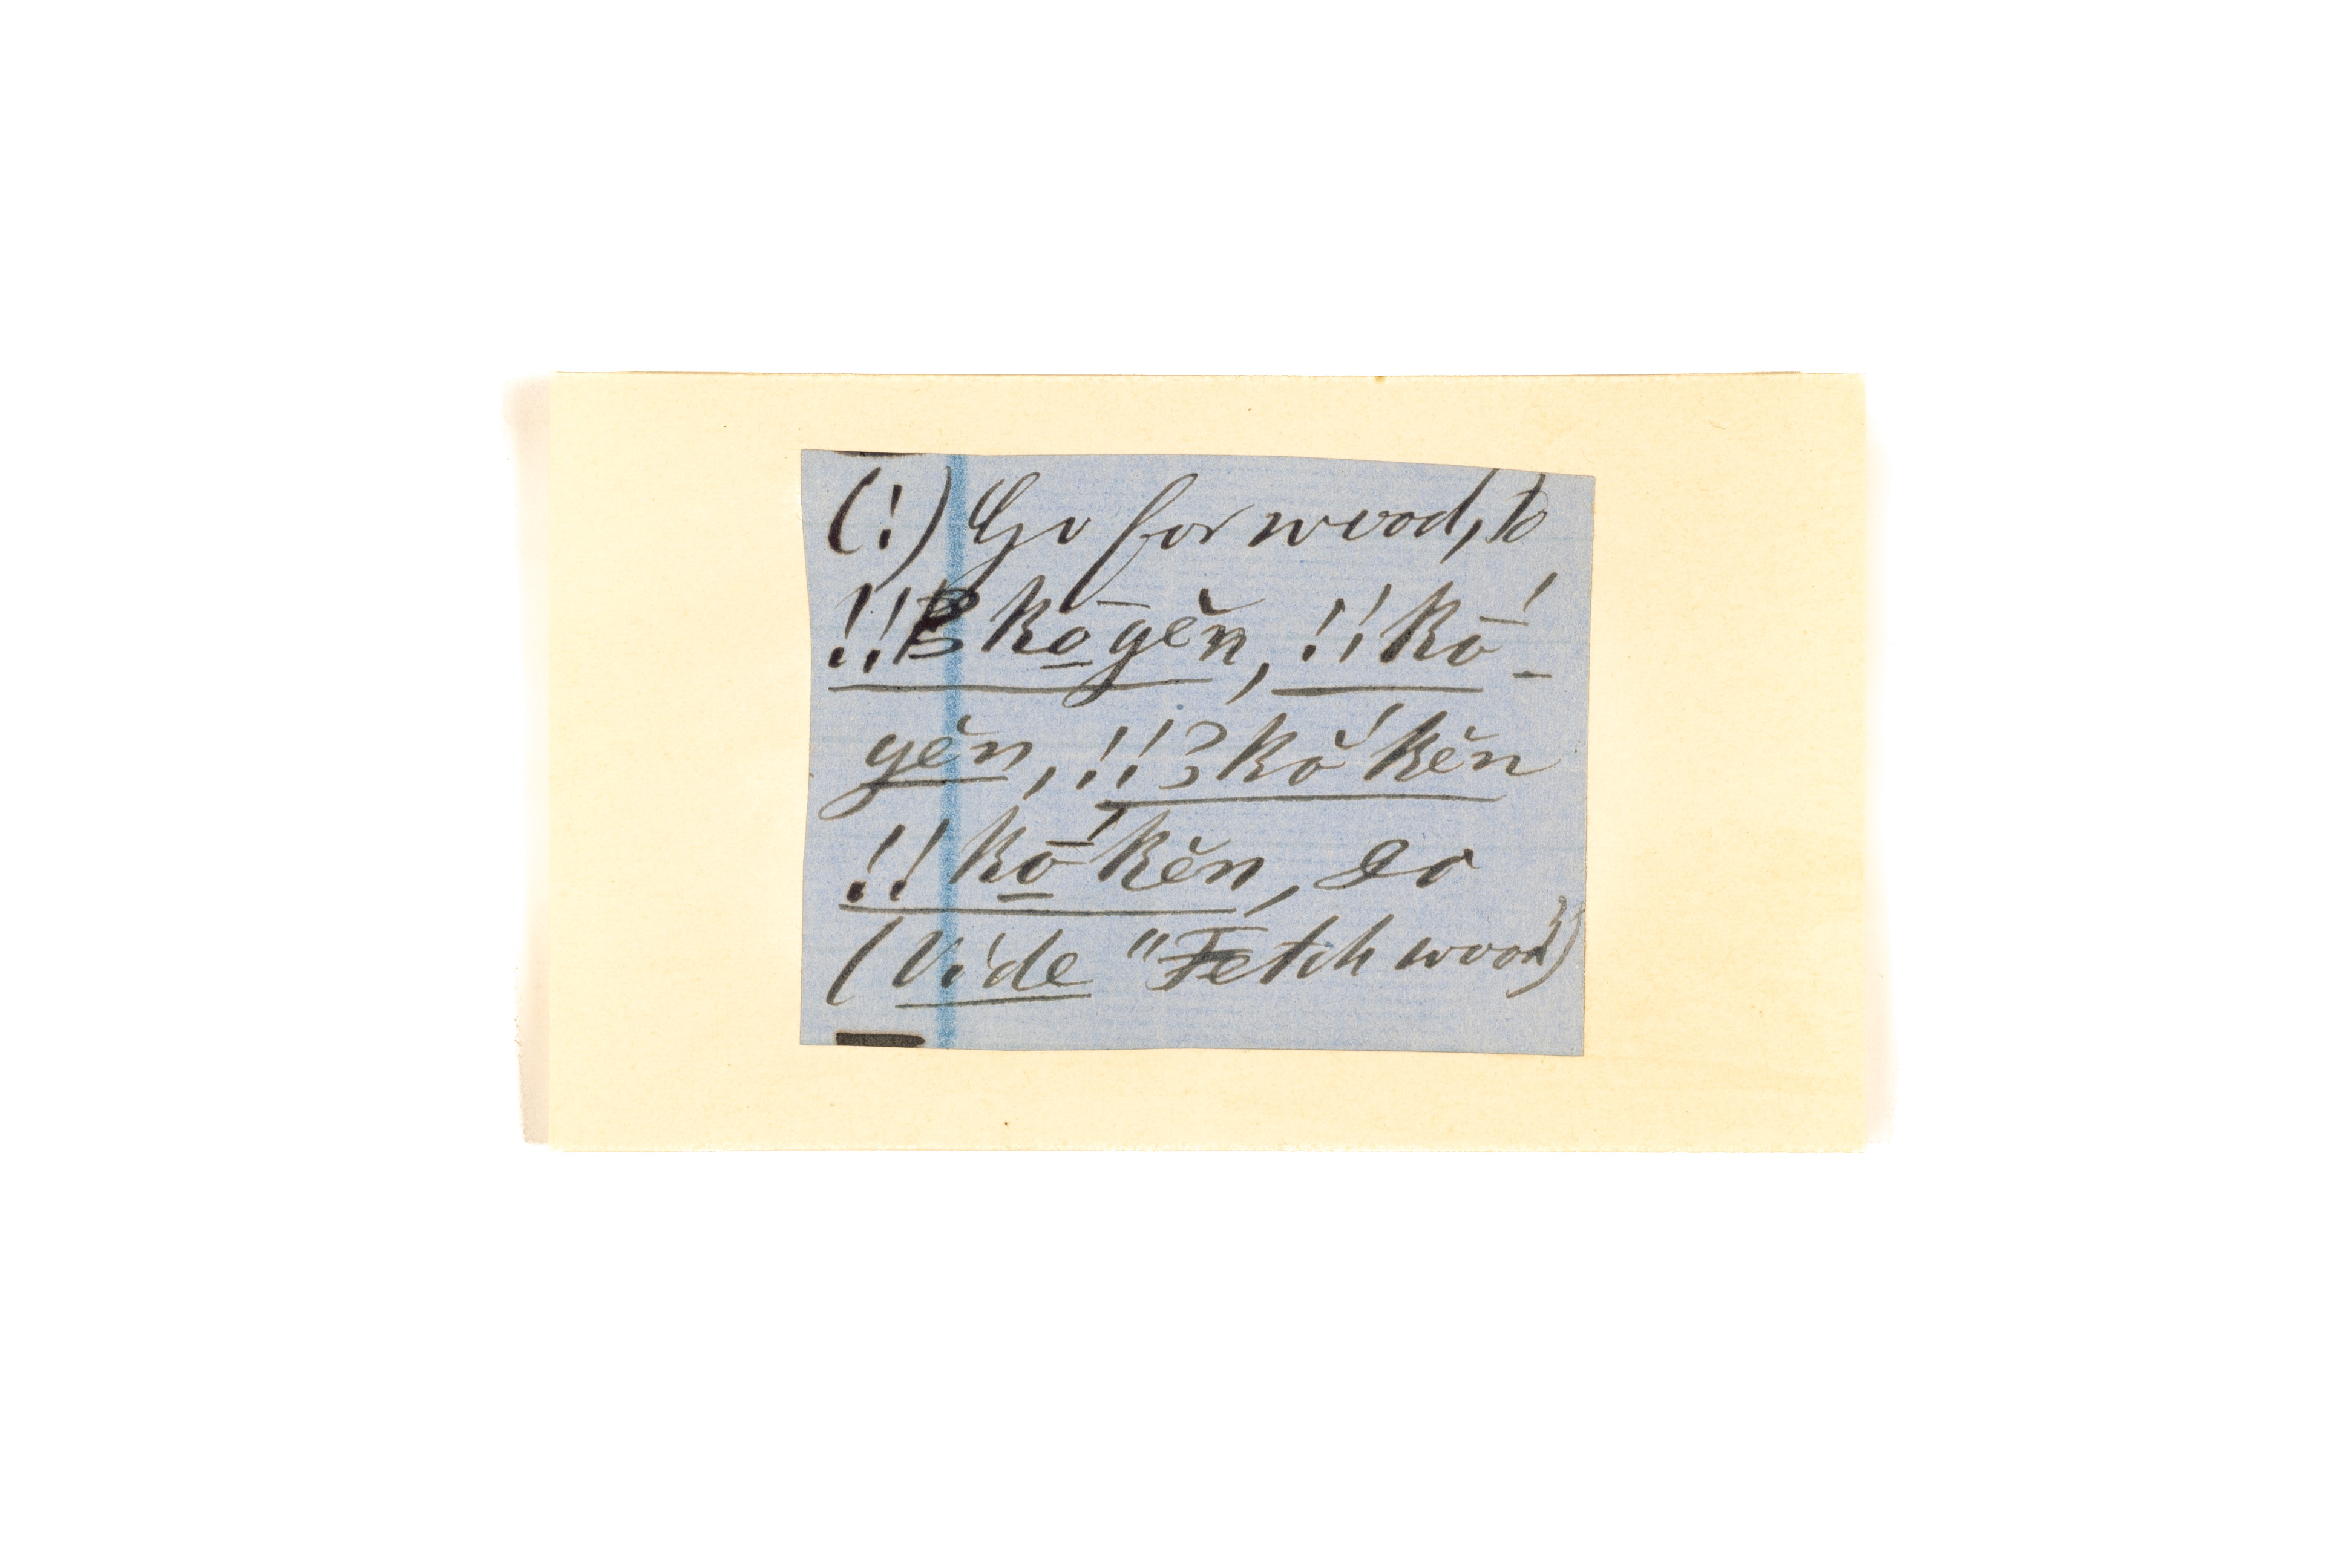 (!) Go for wood, to
!!Ʒkō̱gĕn, !!kō´-
gĕn, !!Ʒkŏ´kĕn
!!kō̱´kĕn, do
(Vide "Fetch wood")